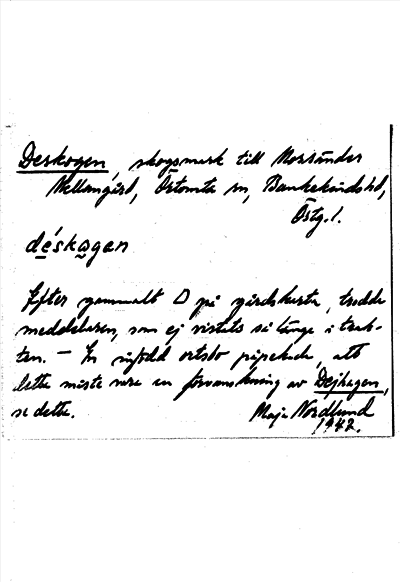 Deskogen, skogsmark till Norrsänder
Mellangård, Örtomta sn, Bankekinds hd,
Östg. l.
déskagen
Efter gammalt D på gårdskarta, trodde
meddelaren, som ej vistats så länge i trak-
ten. – En infödd ortsbo påpekade, att
detta måste vara en förvanskning av Dejhagen,
se dette.
Maja Nordlund
1942.